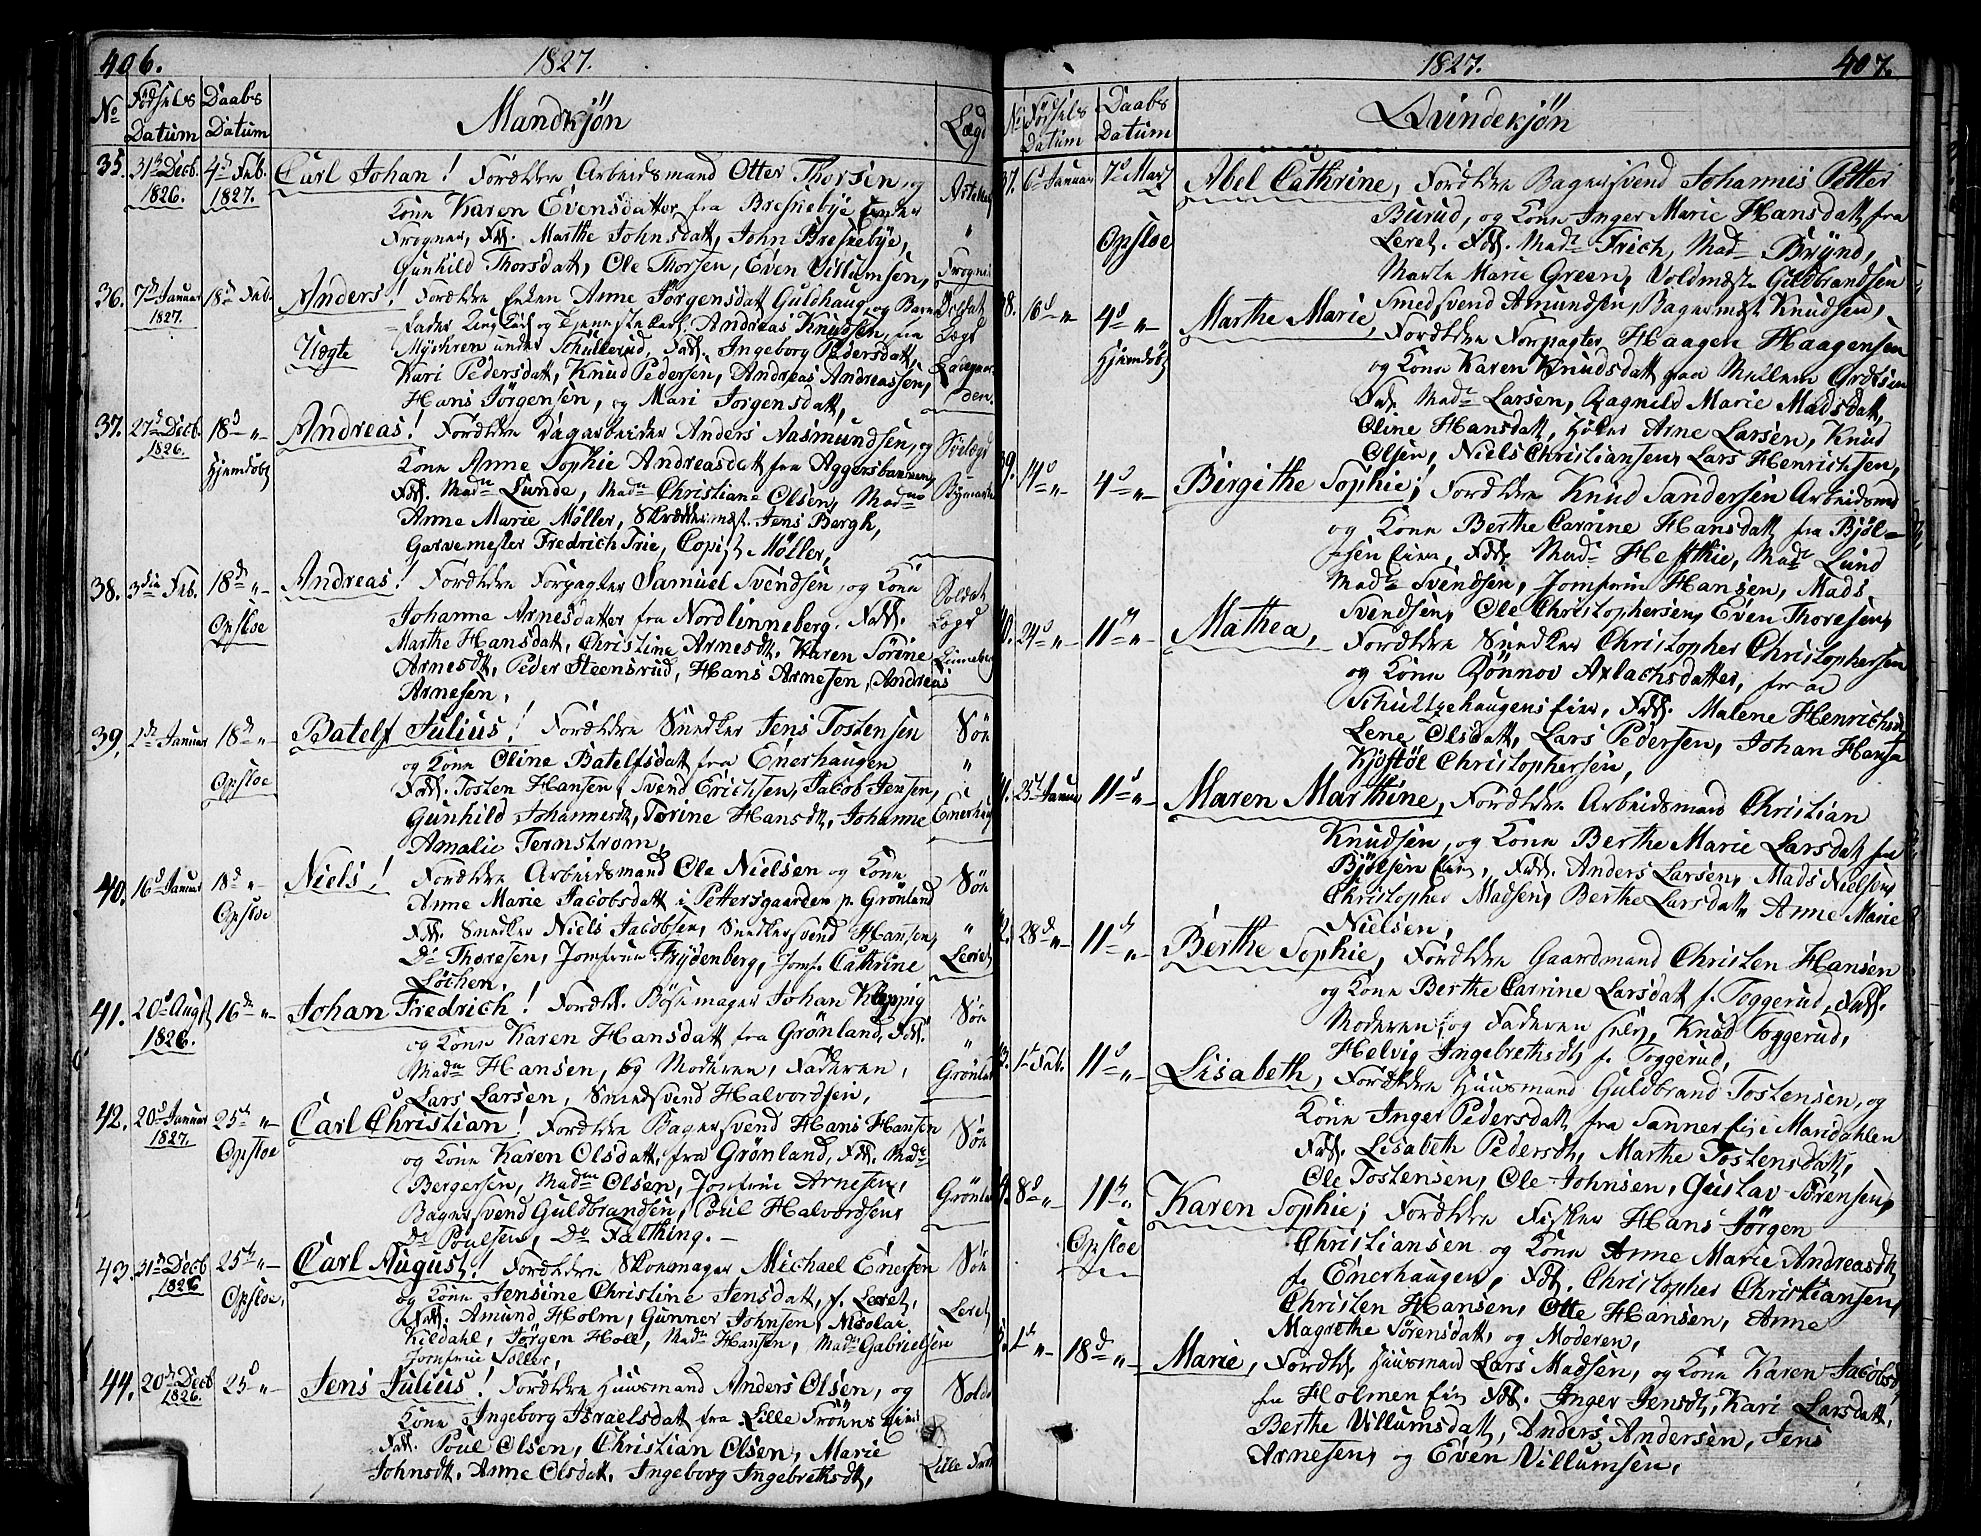 406. 1827.
No Fødsels Datum Daabs Datum Mandkjøn Lægd
35. 31te Decb. 1826. 4de Feb. 1827. Carl Johan! Forældre Arbeidsmand Otter Thorsen, og
Kone Karen Evensdatter fra Bresnebye under
Frogner, Fdd. Marthe Johnsdatt, John Bresnebye,
Gunhild Thorsdatt, Ole Thorsen, Even Villumsen, Frogner
36. 7de Januar 1827. 18de Feb. Anders! Forældre Enken Anne Jørgensdatt Guldhaug, og Barne Soldat
fader Ungkarl og Tjenestekarl Andreas Knudsen, fra Lægd
Uægte Myhren under Schullerud, Fdd. Ingeborg Pedersdatt,
Kari Pedersdatt, Knud Pedersen, Andreas Andreassen,
Hans Jørgensen, og Mari Jørgensdatt,
37. 27de Decb. 1826. 18de " Hjemdøbt Andreas! Forældre Dagarbeider Anders Aasmundsen, og Søelægd
Kone Anne Sophie Andreasdatt fra Aggersbakken,
Fdd. Madm Lunde, Madm Christiane Olsen, Madm Bymarken
Anne Marie Møller, Skræddermest. Jens Bergh,
Garvemester Fredrich Trie, Copist Møller,
38. 3die Feb. 18de " Opsloe Andreas! Forældre Forpagter Samuel Svendsen, og Kone Soldat
Johanne Arnesdatter fra Nordlinneberg. Fdd. Lægd
Marthe Hansdatt, Christine Arnesdt. Karen Sørine Linneberg
Arnesdt, Peder Steensrud, Hans Arnesen, Andreas
Arnesen,
39. 2de Januar 18de " Opsloe Batelf Julius! Forældre Snedker Jens Tostensen Søe
og Kone Oline Batelfsdatt fra Enerhaugen "
Fdd. Tosten Hansen, Svend Erichsen, Jacob Jensen,
Gunhild Johannesdt, Torine Hansdt, Johanne Enerhaug
Amalie Ternstrøm,
40. 16de Januar 18de " Opsloe Niels! Forældre Arbeidsmand Ole Nielsen og Kone Søe
Anne Marie Jacobsdatt i Pettersgaarden p. Grønland
Fdd. Snedker Niels Jacobsen, Snedkersvend Hansen, "
Do Thoresen, Jomfrue Frydenberg, Jomf. Cathrine Leret
Løchen,
41. 20de Augst 1826. 16de " Johan Fredrich! Forældr. Bøssemager Johan Keppig Søe
og Kone Karen Hansdatt fra Grønland, Fdd. "
Madm Hansen, og Moderen, Faderen, Grønland
Lars Larsen, Smedsvend Halvordsen,
42. 20de Januar 1827. 25de " Opsloe Carl Christian! Forældre Bagersvend Hans Hansen Søe
og Kone Karen Olsdatt, fra Grønland, Fdd. Madm
Bergersen, Madm Olsen, Jomfrue Arnesen, Grønland
Bagersvend Guldbrandsen, Poul Halvordsen
Do Poulsen, Do Falthing. –
43. 31te Decb 1826 25de " Opsloe, Carl August! Forældre Skomager Michael Enersen Søe
og Kone Jensine Christine Jensdatt, f. Leret,
Fdd. Amund Holm, Gunner Johnsen, Nicolai Leret,
Kildahl, Jørgen Holl, Madm Hansen, Madm Gabrielsen
Jomfrue Toller,
44. 20de Decb 1826. 25de " Jens Julius! Forældre Huusmand Anders Olsen, og Soldat
Kone Ingeborg Israelsdatt fra Lille Frøens Eie
Fdd. Poul Olsen, Christian Olsen, Marie
Johnsdt. Anne Olsdatt, Ingeborg Ingebrethsdt, Lille Frøen
1827. 407.
No Fødsels datum Daabs Datum Qvindekjøn
37. 6te Januar 7de Mart Opsloe Abel Cathrine, Forældre Bagersvend Johannes Petter
Burud, og Kone Inger Marie Hansdatt, fra
Leret. Fdd. Madm Frich, Madm Brynd,
Marte Marie Green, Voldmest. Guldbrandsen
Smedsvend Amundsen, Bagermest Knudsen,
38. 6de " 4de " Hjemdøbt Marthe Marie, Forældre Forpagter Haagen Haagensen
og Kone Karen Knudsdatt fra Mellem Grefsen
Fdd. Madm Larsen, Ragnild Marie Madsdatt,
Oline Hansdatt, Høker Arne Larsen, Knud
Olsen, Niels Christiansen, Lars Henrichsen,
39. 14de " 4de " Birgithe Sophie; Forældre Knud Sandersen Arbeidsmd
og Kone Berthe Carrine Hansdatt, fra Bjøl-
sen Eie, Fdd. Madm Hefthie, Madm Lund
Madm Svendsen, Jomfrue Hansen, Mads
Svendsen, Ole Christophersen, Even Thoresen,
40. 24de " 11te " Mathea, Forældre Snedker Christopher Christophersen
og Kone Rønnov Axlachsdatter, fra
Schultzehaugens Eie, Fdd. Malene Henrichsd
Lene Olsdatt, Lars Pedersen, Johan Hansen
Kjøstøl Christophersen,
41. 23de Januar 11te " Maren Marthine, Forældre Arbeidsmand Christian
Knudsen, og Kone Berthe Marie Larsdatt, fra
Bjølsen Eie, Fdd. Anders Larsen, Mads Nielsen,
Christopher Madsen, Berthe Larsdatt, Anne Marie
Nielsen,
42. 28de " 11te " Berthe Sophie, Forældre Gaardmand Christen Hansen
og Kone Berthe Carrine Larsdatt f. Toggerud, Fadd.
Moderen, og Faderen selv, Knud Toggerud,
Helvig Ingebrethsdt, f. Toggerud,
43. 1te Feb. 11te " Lisabeth, Forældre Huusmand Guldbrand Tostensen, og
Kone Inger Pedersdatt, fra Sanner Eie i Maridahlen
Fdd. Lisabeth Pedersdt, Marthe Tostensdatt,
Ole Tostensen, Ole Johnsen, Gustav Sørensen,
44. 8de " 11te " Opsloe Karen Sophie; Forældre Fisker Hans Jørgen
Christiansen og Kone Anne Marie Andreasdt,
f. Enerhaugen, Fdd. Christopher Christiansen,
Christen Hansen, Otte Hansen, Anne
Magrethe Sørensdatt, og Moderen,
18de " Marie, Forældr. Huusmand Lars Madsen, og Kone Karen Jacobsd
fra Holmen Eie Fdd. Inger Jensdt, Kari Larsdatt,
Berthe Villumsdatt, Anders Andersen, Jens
Arnesen, og Even Villumsen,